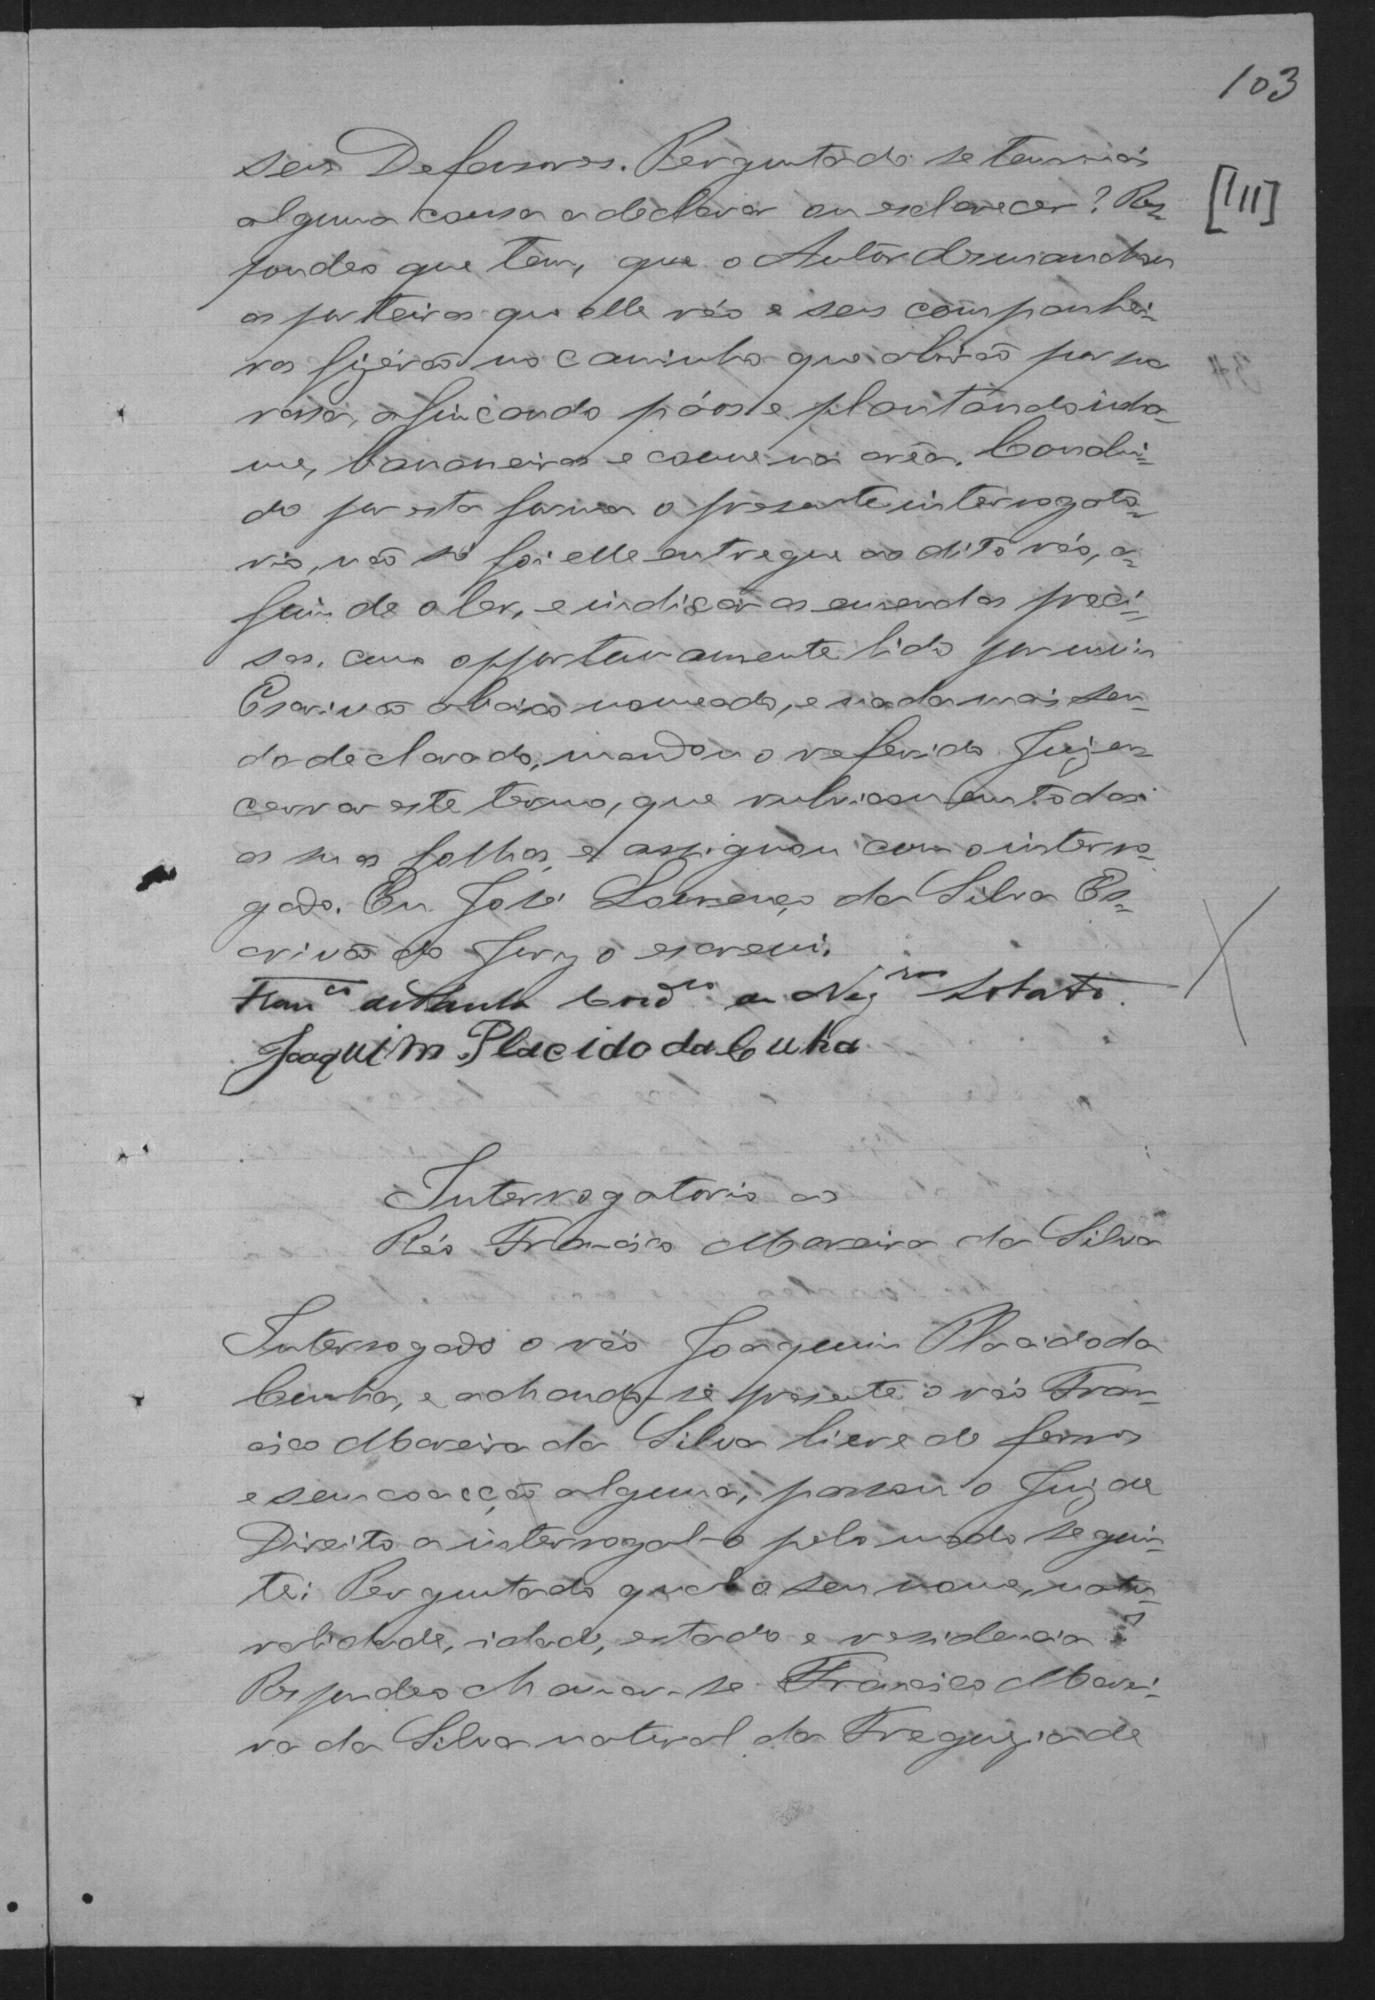 103
[111]
seus Defensores. Perguntado se tem mais
alguma cousa a declarar ou esclarecer? Res=
pondeo que tem, que o Autor derrumandou
as porteiras que elle réo e seus companhei=
ros fizérão no caminho que abrirão por no
vossa, afincando páos e plantando inha
me, bananeiras e canna na aréa. Conclui=
do por esta forma o presente interrogato=
rio, não só foi elle entregue ao dito réo, a=
fim de o ler, e indicar as emendas preci=
sas, como opportunamente lido por mim
Escrivão abaixo nomeado, e nada mais sen=
do declarado, mandou o referido Juiz en=
cerrar este termo, que rubricou em todas
as suas folhas, e assignou com o interro=
gado. Eu José Lourenço da Silva Es=
crivão do Jury o escrevi.
Franco de Paula Cordro de Negros Lobato.
Joaquim Placido da Cunha
Interrogatorio ao
Réo Francisco Moreira da Silva
Interrogado o réo Joaquim Placido da
Cunha, e achando-se presente o réo Fran=
cisco Moreira da Silva livre de ferros
e sem coacção alguma, passou o Juiz de
Direito a interrogal-o pelo modo seguin=
te: Perguntado qual o seu nome, natu=
ralidade, idade, estado e residencia?
Respondeo chamar-se Francisco Morei=
ra da Silva natural da Freguezia de